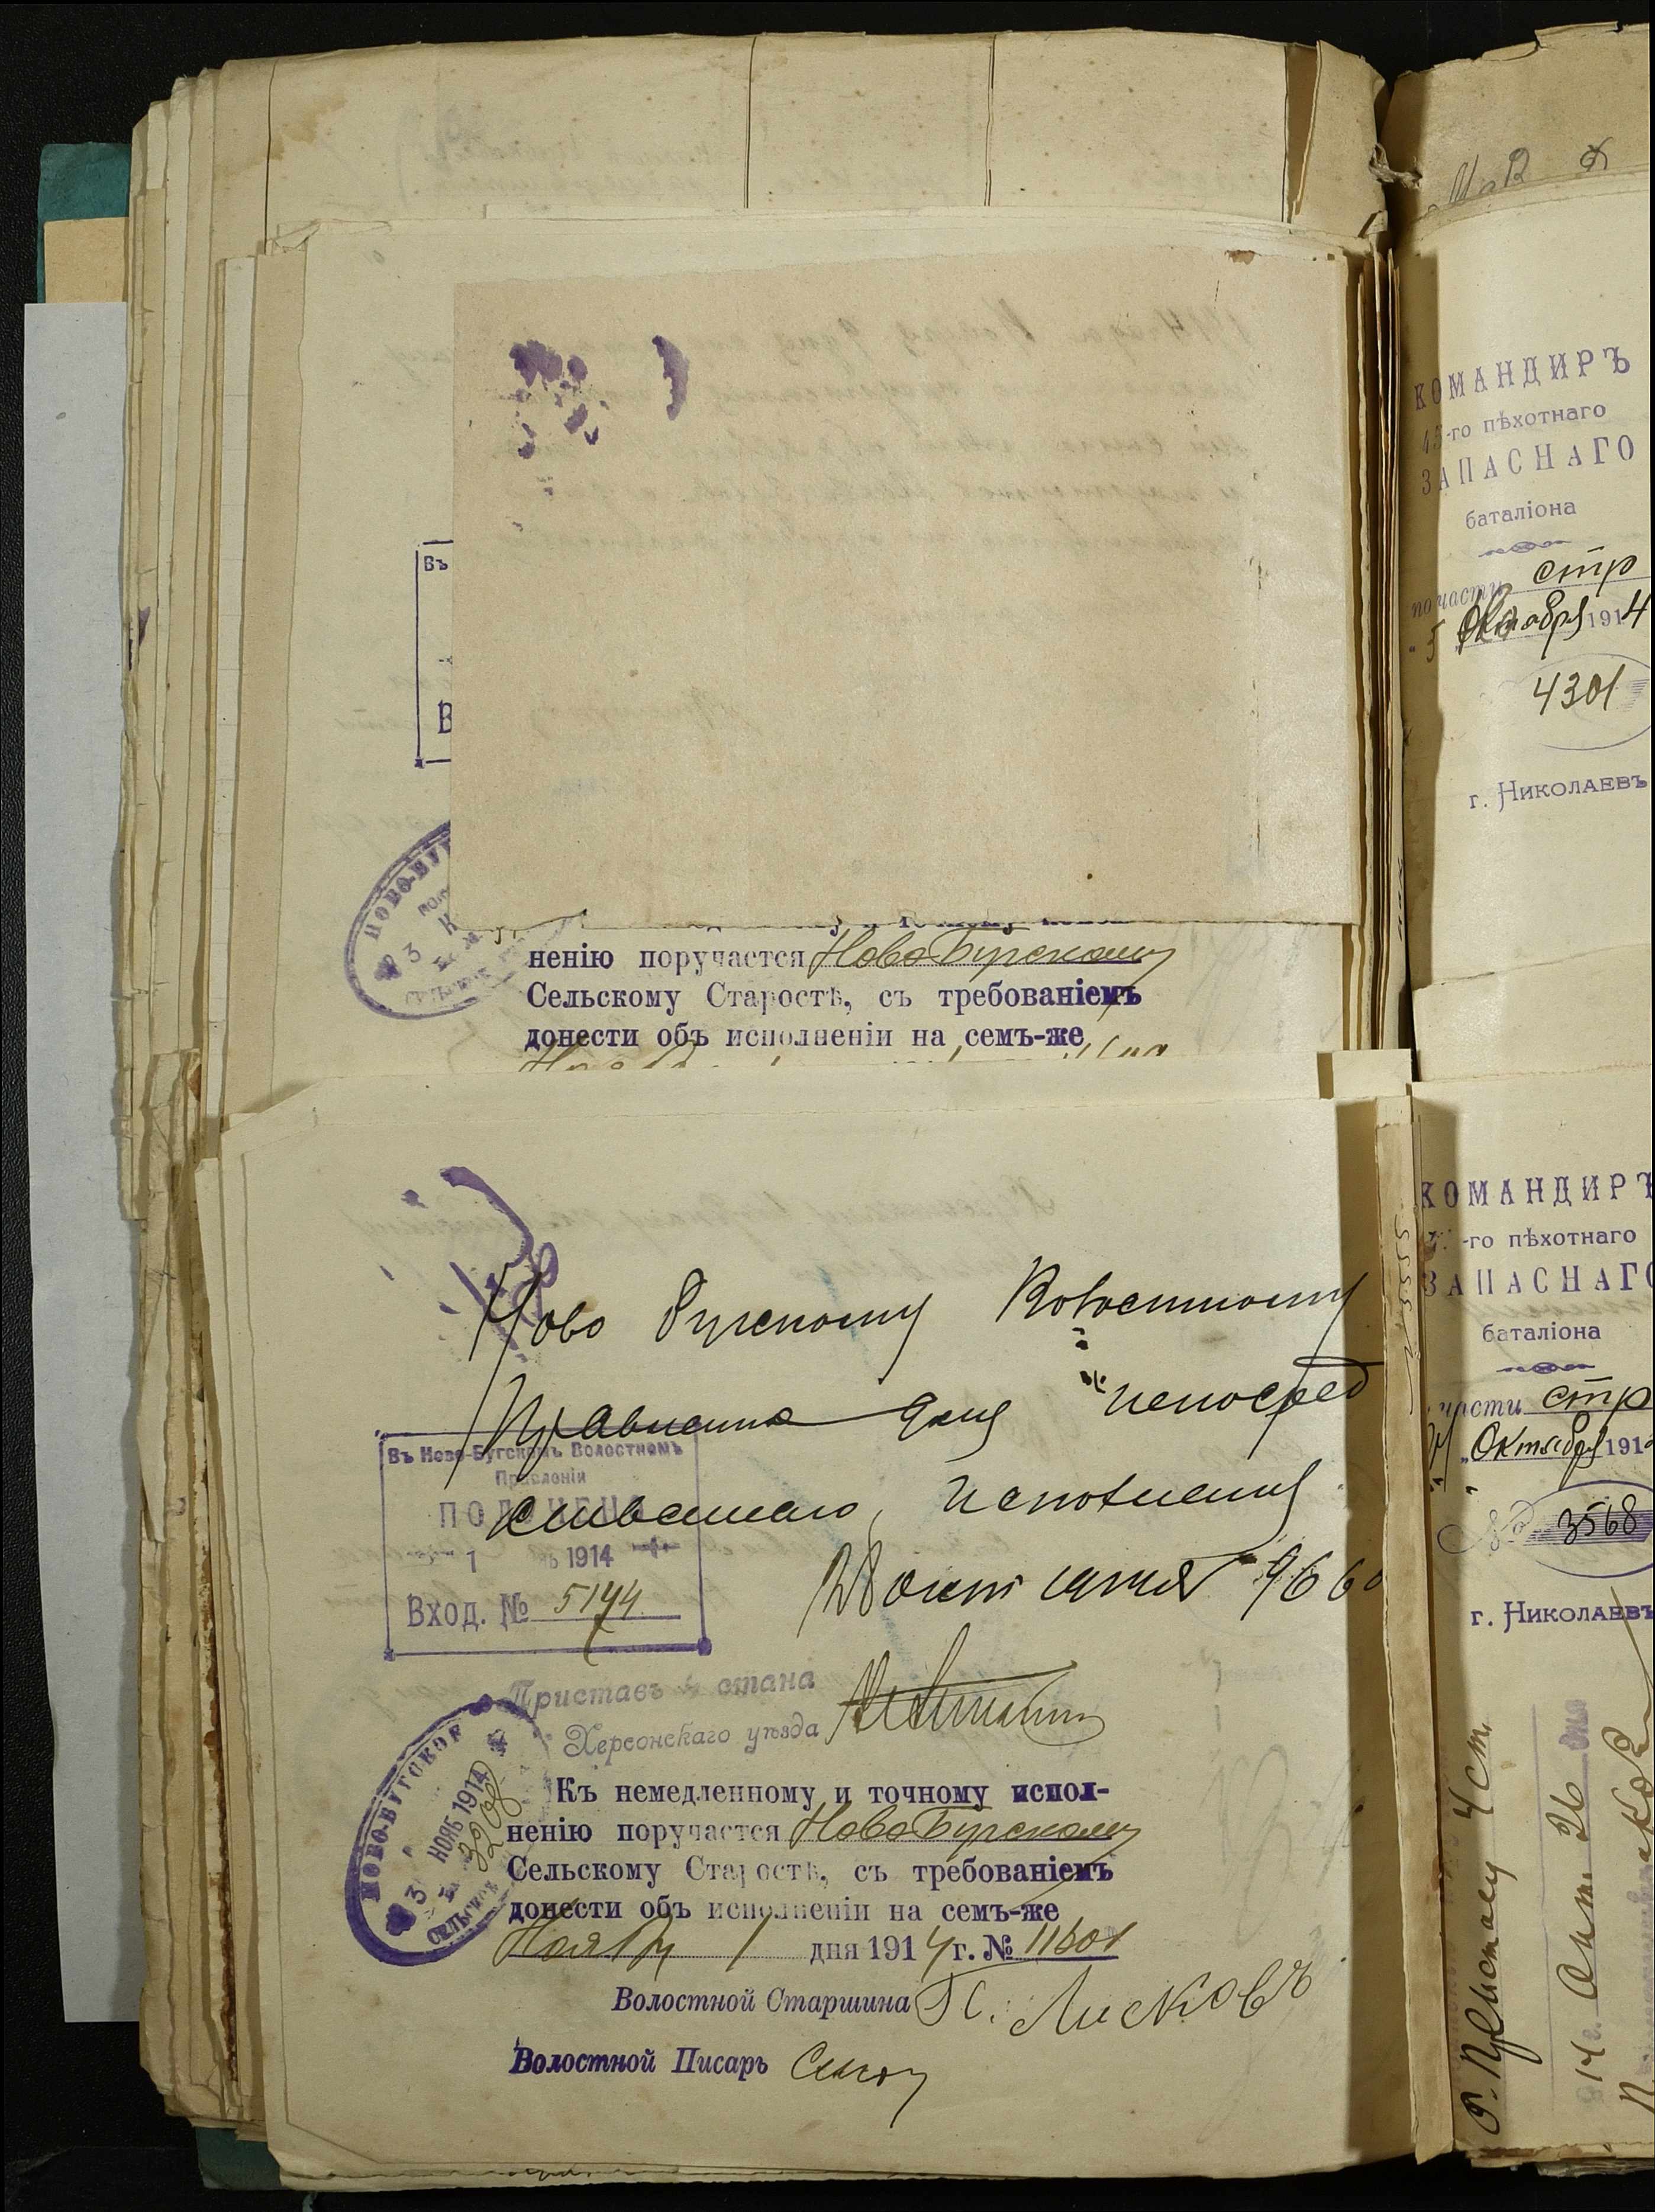 Въ
В
НОВО-БУГ
3
ненію поручается Ново Бугскому
Сельскому Старостѣ, съ требованіемъ
донести объ исполненіи на семъ-же
Ново Бугскому Волостному
Правлению для непосред
ственнаго исполнения
28 окт 9660
Въ Ново-Бугскомъ Волостномъ
Правленіи
ПОЛУЧЕНО
1 1914
Вход. № 5194
Приставъ 4 стана
Херсонскаго уѣзда
НОВО-БУГСКОЕ
3 НОЯБ 1914
3208
СЕЛЬСКОЕ
Къ немедленному и точному испол-
ненію поручается Ново Бугскому
Сельскому Старостѣ, съ требованіемъ
донести объ исполненіи на семъ-же
Ноября 1 дня 1914 г. № 11601
Волостной Старшина К. Лисковъ
Волостной Писарь
КОМАНДИРЪ
-го пѣхотнаго
ЗАПАСНАГО
баталіона
по части стр
"5" Октября 1914
4301
г. Николаевъ
КОМАНДИРЪ
-го пѣхотнаго
ЗАПАСНАГО
баталіона
части стр
Октября 191
№ 3568
г. Николаевъ
Г. Приставу 4 ст.
914 г. Окт. 26 дня